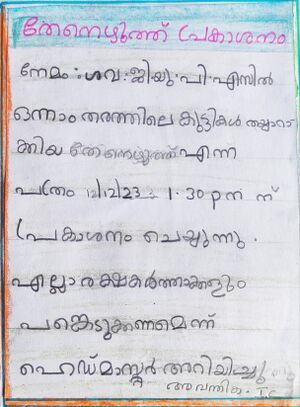 തേനെഴുത്ത് പ്രകാശനം
നേമം : ഗവ . ജി യു . പി . എസിൽ
ഒന്നാം തരത്തിലെ കുട്ടികൾ തയ്യാറാ
ക്കിയ തേനെഴുത്ത് എന്ന
പത്രം 12/2/23 1.30 pm ന്
പ്രകാശനം ചെയ്യുന്നു .
എല്ലാ രക്ഷകർത്താക്കളും
പങ്കെടുക്കണമെന്ന്
ഹെഡ്മാസ്റ്റർ അറിയിച്ചു
അവന്തിക . T.S